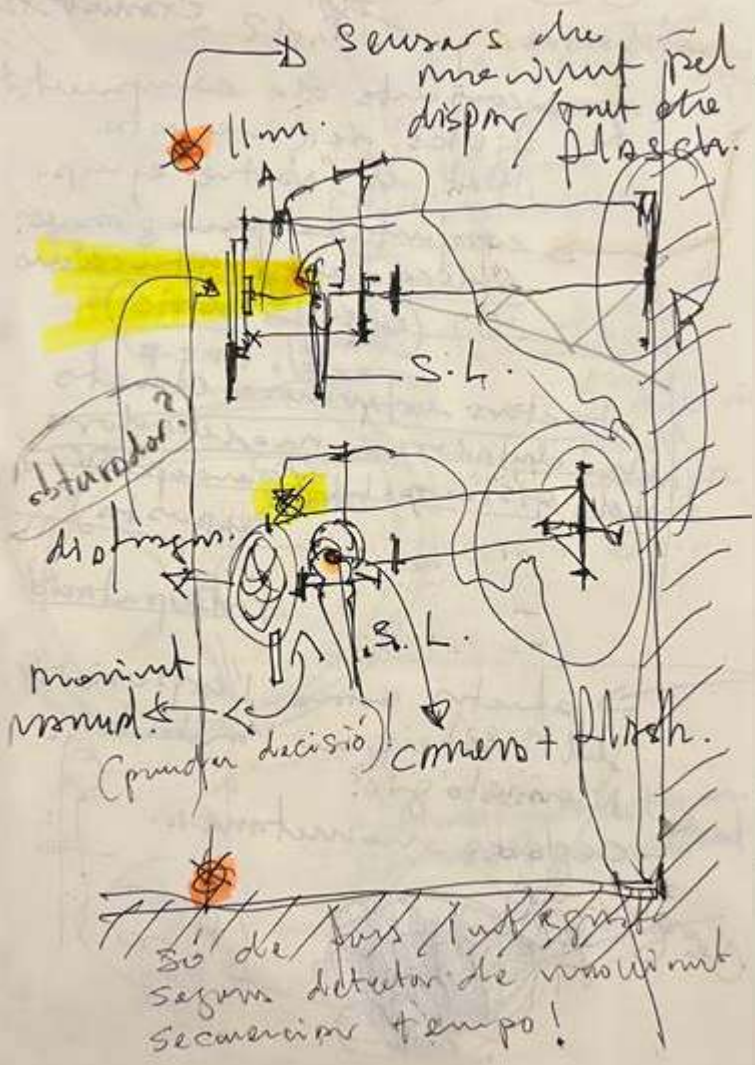 sensors de
moviment pel
dispar/mut de
flasch.
llum.
S.L.
obturador?
diafragm.
S.L.
moviment
manual.
(prendre decisió)!
camera + flash.
so de fons
segons detector de moviment.
secuenciar tempo!